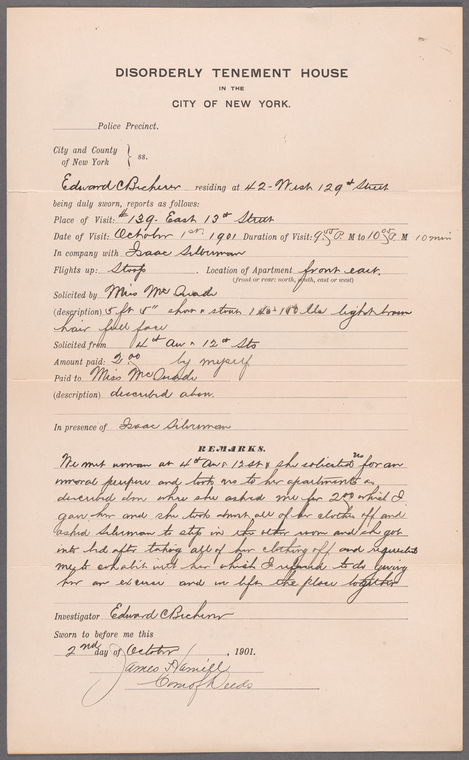 DISORDERLY TENEMENT HOUSE
IN THE
CITY OF NEW YORK.
Police Precinct.
City and County
of New York } ss.
Edward C Becherer residing at 42-West 129th Street
being duly sworn, reports as follows:
Place of Visit: # 139- East 13th Street
Date of Visit: October 1st 1901 Duration of Visit: 9 55 P. M to 10 05 P M 10 min
In company with Isaac Silverman
Flights up: Stoop . Location of Apartment front east.
(front or rear: north, south, east or west)
Solicited by Miss McQuade
(description) 5 ft 5" short & stout 140-150 lbs light brown
hair full face
Solicited from 4th Av & 12th Sts
Amount paid: 2.00 by myself
Paid to Miss McQuade
(description) described above.
In presence of Isaac Silverman
REMARKS.
We met woman at 4th Av & 12 st & she solicited us for an
immoral purpose and took us to her apartments as
described above where she asked me for 2 00 which I
gave her and she took almost all of her clothes off and
asked Silverman to step in the other room and she got
into bed after taking all of her clothing off and requested
me to cohabit with her which I refused to do giving
her an excuse and we left the place together
Investigator Edward C Becherer
Sworn to before me this
2nd day of October , 1901.
James Hamill
Com of Deeds